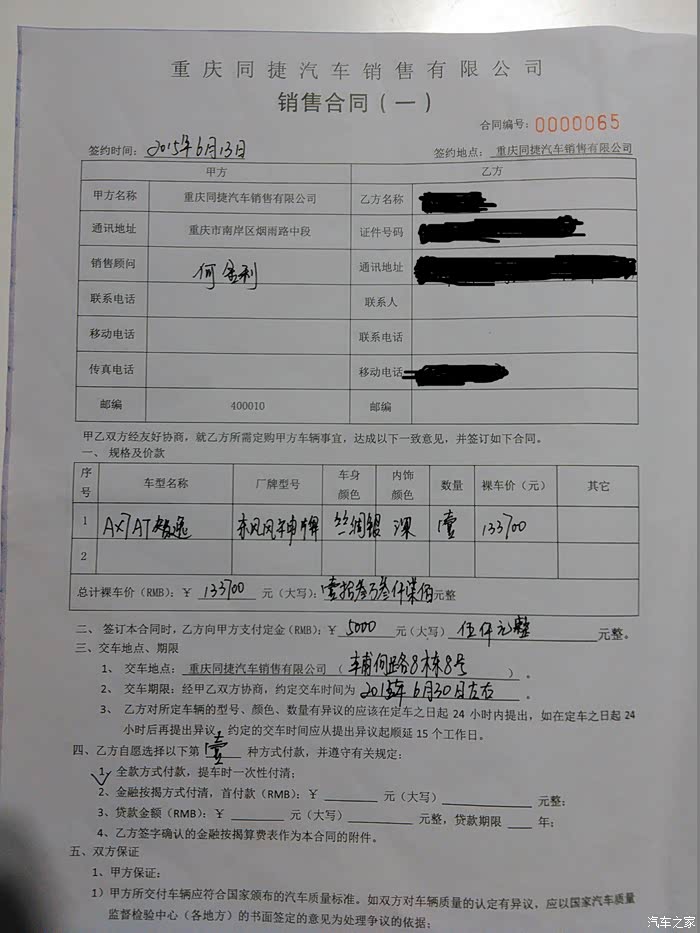 重庆同捷汽车销售有限公司
销售合同（一）
合同编号：0000065
签约时间：2015年6月13日 签约地点：重庆同捷汽车销售有限公司
甲方 乙方
甲方名称 重庆同捷汽车销售有限公司 乙方名称
通讯地址 重庆市南岸区烟雨路中段 证件号码
销售顾问 何 利 通讯地址
联系电话 联系人
移动电话 联系电话
传真电话 移动电话
邮编 400010 邮编
甲乙双方经友好协商，就乙方所需定购甲方车辆事宜，达成以下一致意见，并签订如下合同。
一、规格及价款
序号 车型名称 厂牌型号 车身颜色 内饰颜色 数量 裸车价（元） 其它
1 AX7 AT智逸 东风风神牌 丝绸银 深 壹 133700
2
总计裸车价（RMB）：￥ 133700 元（大写）：壹拾叁万叁仟柒佰元整
二、签订本合同时，乙方向甲方支付定金（RMB）：￥ 5000 元（大写） 伍仟元整 元整。
三、交车地点、期限
1、交车地点：重庆同捷汽车销售有限公司（ 路8栋8号 ）。
2、交车期限：经甲乙双方协商，约定交车时间为 2015年6月30日左右 。
3、乙方对所定车辆的型号、颜色、数量有异议的应该在定车之日起 24 小时内提出，如在定车之日起 24
小时后再提出异议，约定的交车时间应从提出异议起顺延 15 个工作日。
四、乙方自愿选择以下第 壹 种方式付款，并遵守有关规定：
1、全款方式付款，提车时一次性付清；
2、金融按揭方式付清，首付款（RMB）：￥ 元（大写） 元整；
3、贷款金额（RMB）：￥ 元（大写） 元整，贷款期限 年；
4、乙方签字确认的金融按揭算费表作为本合同的附件。
五、双方保证
1、甲方保证：
1）甲方所交付车辆应符合国家颁布的汽车质量标准。如双方对车辆质量的认定有异议，应以国家汽车质量
监督检验中心（各地方）的书面签定的意见为处理争议的依据；
汽车之家